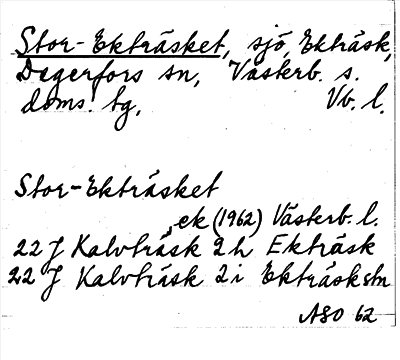 Stor-Ekträsket, sjö, Ekträsk,
Degerfors sn, Västerb. s.
doms. tg, Vb. l.
Stor-Ekträsket
, ek (1962) Västerb. l.
22 J Kalvträsk 2h Ekträsk
22 J Kalvträsk 2i Ekträsk stn
ASO 62